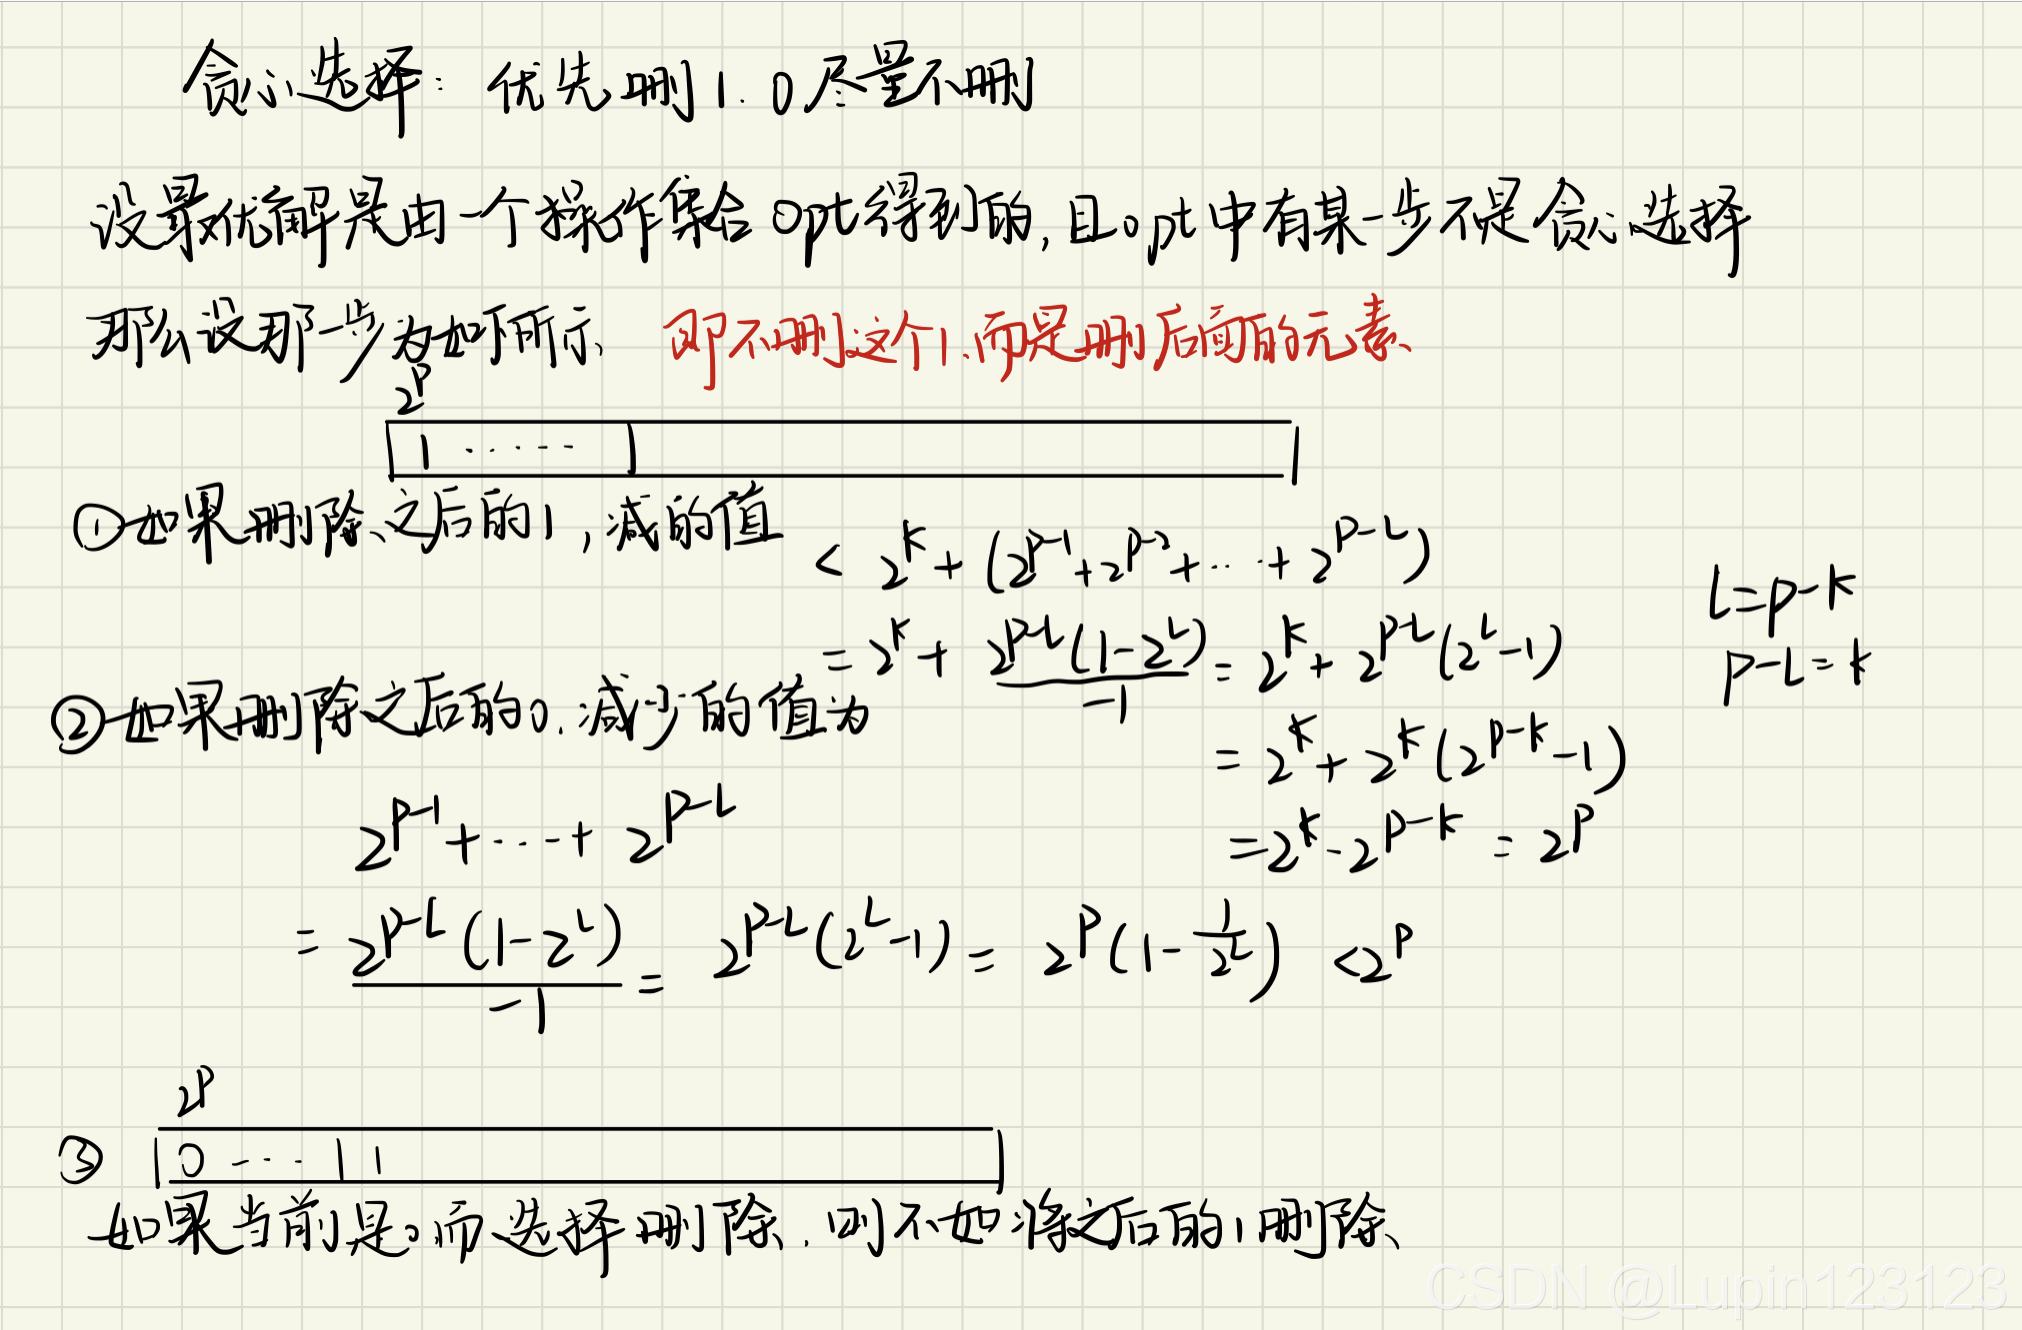 贪心选择：优先删1.0尽量不删
设最优解是由一个操作集合opt得到的,且opt中有某一步不是贪心选择
那么设那一步为如下所示、 即不删这个1.而是删后面的元素、
2^p
1 ·····
①如果删除之后的1,减的值 < 2^k + (2^{p-1}+2^{p-2}+···+2^{p-L})
L=p-k
= 2^k + \frac{2^{p-L}(1-2^L)}{-1} = 2^k + 2^{p-L}(2^L-1)
p-L=k
②如果删除之后的0.减少的值为
= 2^k + 2^k(2^{p-k}-1)
2^{p-1}+···+2^{p-L}
=2^k·2^{p-k} = 2^p
= \frac{2^{p-L}(1-2^L)}{-1} = 2^{p-L}(2^L-1) = 2^p(1-\frac{1}{2^L}) <2^p
2^p
③ 0 ···· 1
如果当前是0而选择删除.则不如将之后的1删除、
CSDN @Lupin123123